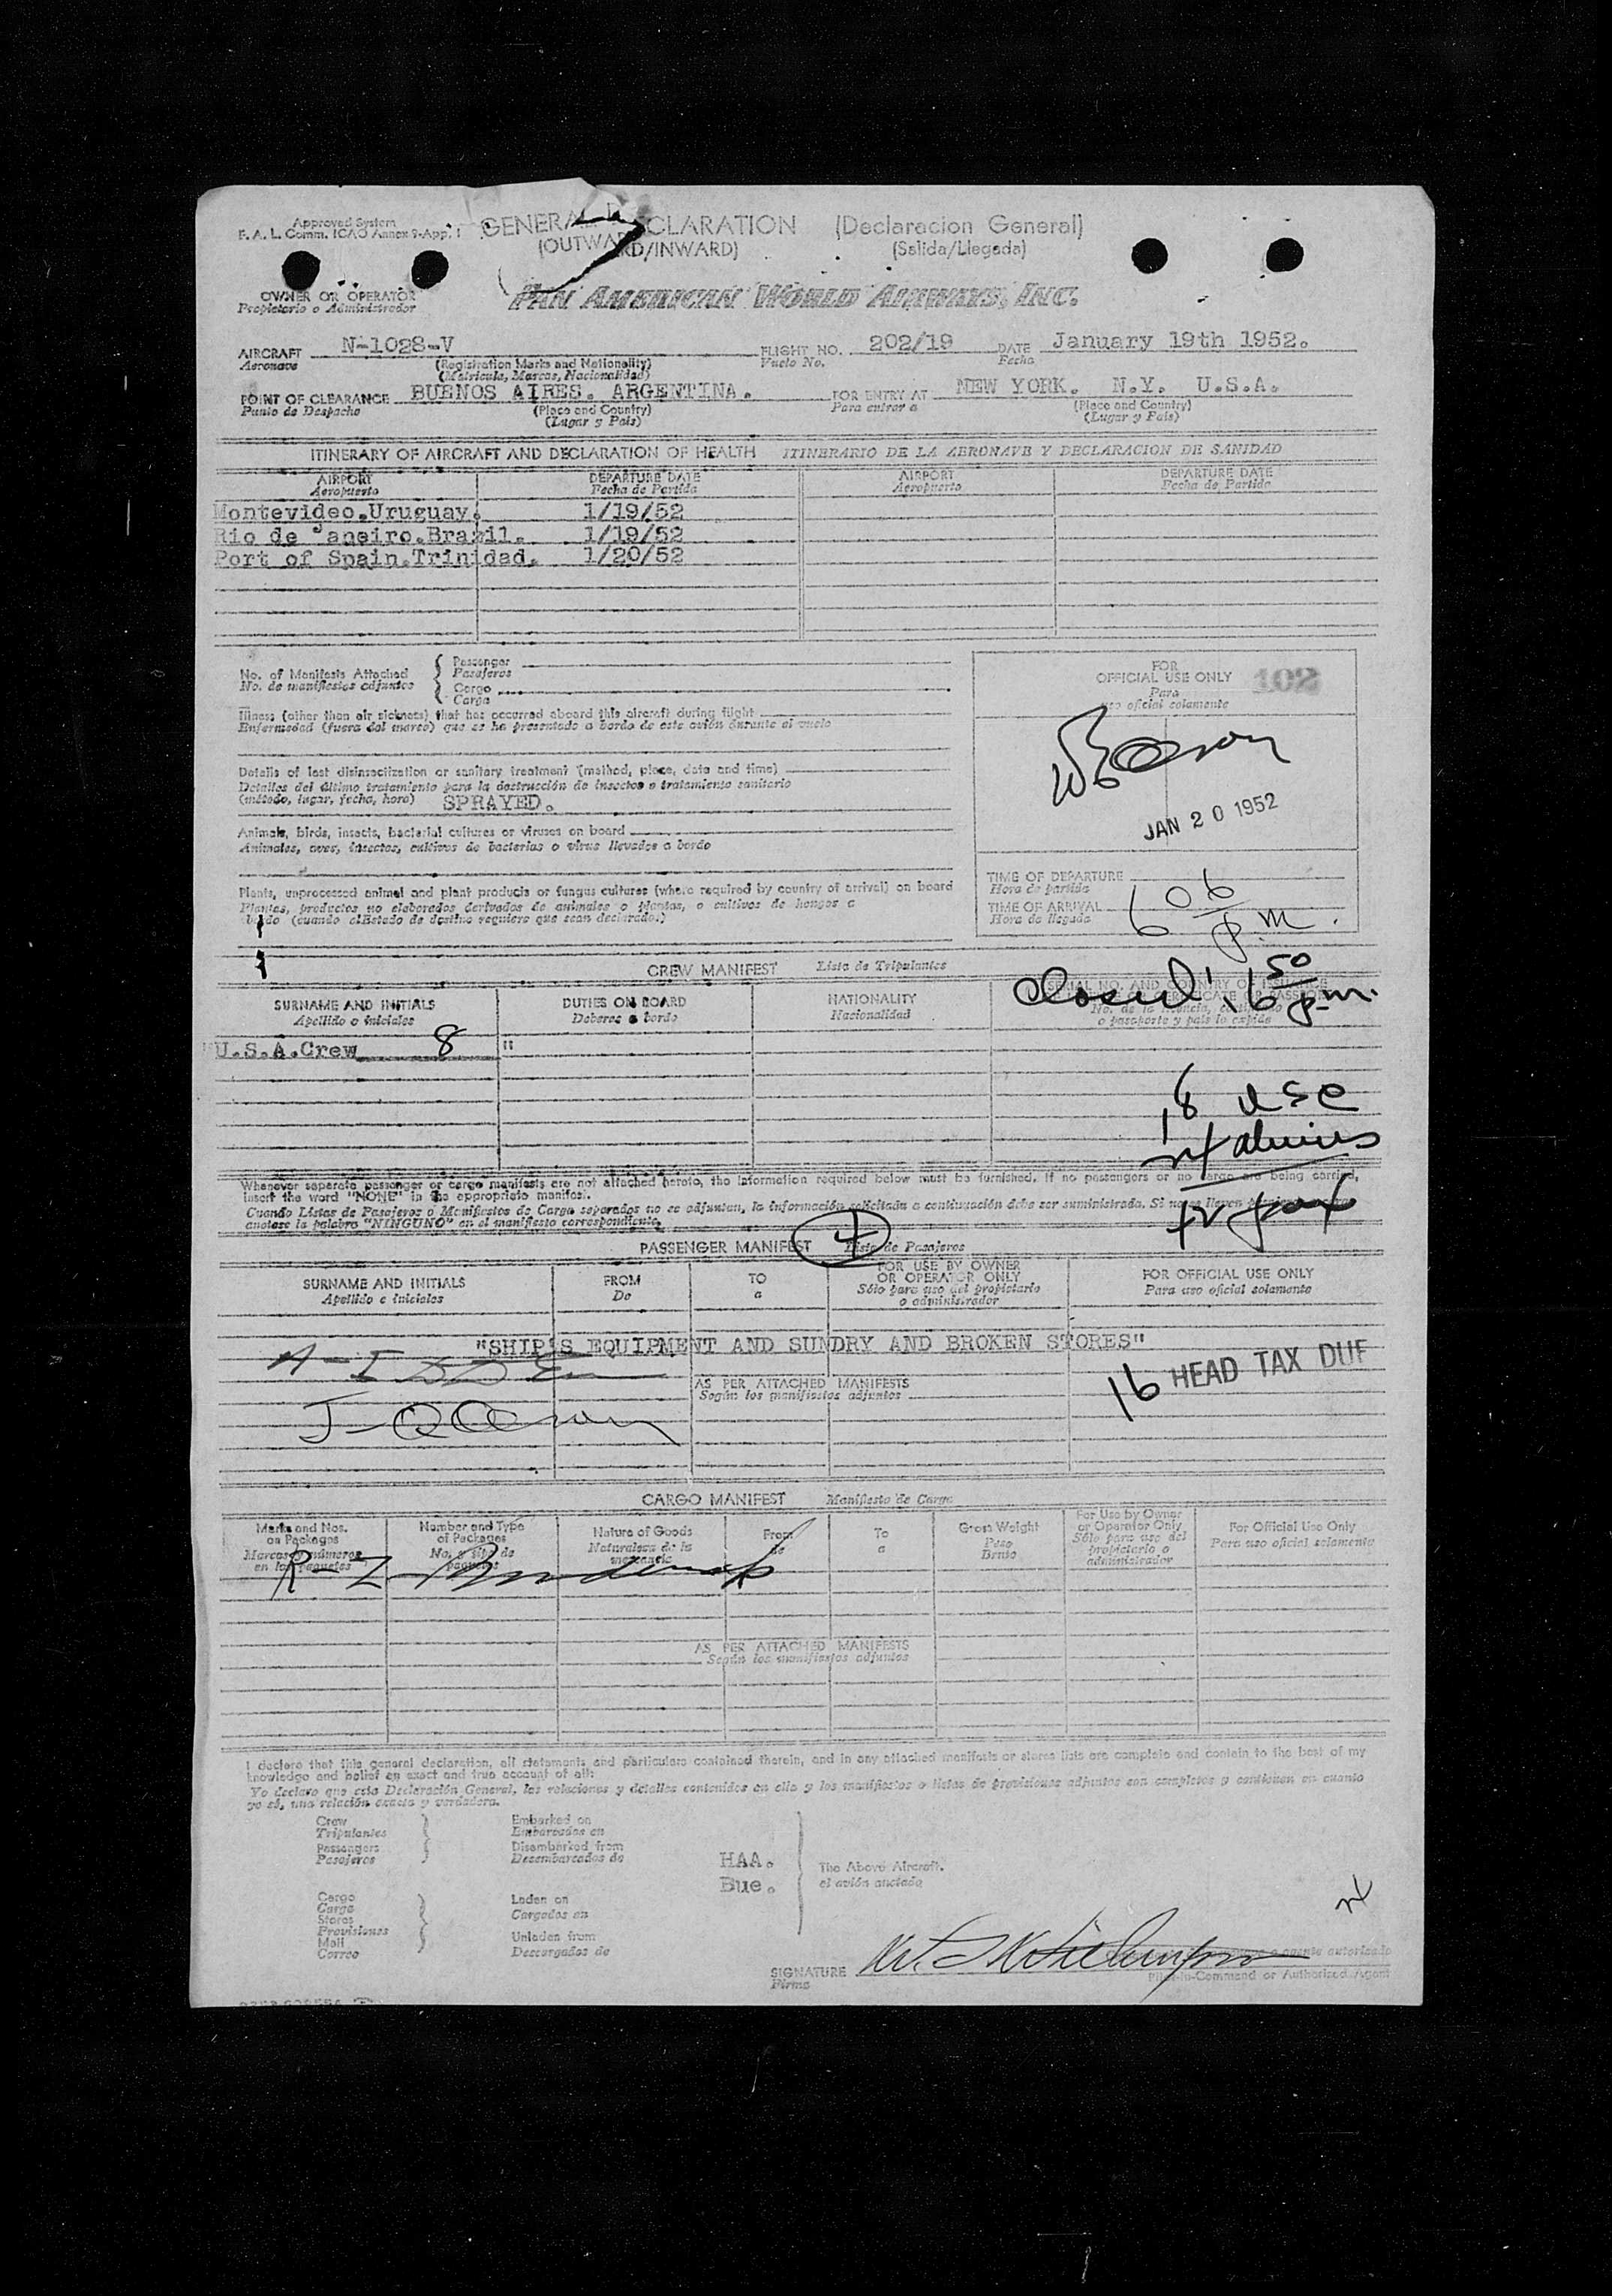 Approved System
F. A. L. Comm. ICAO Annex 9-App. 1
GENERAL DECLARATION (Declaracion General)
(OUTWARD/INWARD) (Salida/Llegada)
OWNER OR OPERATOR
Propietario o Administrador
PAN AMERICAN WORLD AIRWAYS, INC.
AIRCRAFT N-1028-V FLIGHT NO. 202/19 DATE January 19th 1952.
Aeronave (Registration Marks and Nationality) Vuelo No. Fecha
(Matricula, Marcas, Nacionalidad)
POINT OF CLEARANCE BUENOS AIRES. ARGENTINA. FOR ENTRY AT NEW YORK. N.Y. U.S.A.
Punto de Despacho (Place and Country) Para entrar a (Place and Country)
(Lugar y Pais) (Lugar y Pais)
ITINERARY OF AIRCRAFT AND DECLARATION OF HEALTH ITINERARIO DE LA AERONAVE Y DECLARACION DE SANIDAD
AIRPORT DEPARTURE DATE AIRPORT DEPARTURE DATE
Aeropuerto Fecha de Partida Aeropuerto Fecha de Partida
Montevideo.Uruguay. 1/19/52
Rio de Janeiro.Brazil. 1/19/52
Port of Spain.Trinidad. 1/20/52
No. of Manifests Attached
No. de manifiestos adjuntos
Passenger
Pasajeros
Cargo
Carga
FOR
OFFICIAL USE ONLY 102
Para
uso oficial solamente
Illness (other than air sickness) that has occurred aboard this aircraft during flight
Enfermedad (fuera del mareo) que se ha presentado a bordo de este avión durante el vuelo
Details of last disinsectization or sanitary treatment (method, place, date and time)
Detalles del último tratamiento para la destrucción de insectos o tratamiento sanitario
(método, lugar, fecha, hora) SPRAYED.
JAN 20 1952
Animals, birds, insects, bacterial cultures or viruses on board
Animales, aves, insectos, cultivos de bacterias o virus llevados a bordo
Plants, unprocessed animal and plant products or fungus cultures (where required by country of arrival) on board
Plantas, productos no elaborados derivados de animales o plantas, o cultivos de hongos a
bordo (cuando el Estado de destino requiere que sean declarados)
TIME OF DEPARTURE
Hora de partida
TIME OF ARRIVAL 6 06 p.m.
Hora de llegada
CREW MANIFEST Lista de Tripulantes
closed 6 50 p.m.
SURNAME AND INITIALS DUTIES ON BOARD NATIONALITY
Apellido e iniciales Deberes a bordo Nacionalidad
U.S.A.Crew 8 "
18 usc
Whenever separate passenger or cargo manifests are not attached hereto, the information required below must be furnished. If no passengers or no cargo are being carried,
insert the word "NONE" in the appropriate manifest.
Cuando Listas de Pasajeros o Manifiestos de Carga separados no se adjuntan, la información solicitada a continuación debe ser suministrada. Si no se lleven
anotese la palabra "NINGUNO" en el manifiesto correspondiente.
PASSENGER MANIFEST Lista de Pasajeros
SURNAME AND INITIALS FROM TO FOR USE BY OWNER OR OPERATOR ONLY FOR OFFICIAL USE ONLY
Apellido e iniciales De a Sólo para uso del propietario o administrador Para uso oficial solamente
"SHIP'S EQUIPMENT AND SUNDRY AND BROKEN STORES"
16 HEAD TAX DUE
AS PER ATTACHED MANIFESTS
Según los manifiestos adjuntos
CARGO MANIFEST Manifiesto de Carga
Marks and Nos. on Packages Number and Type of Packages Nature of Goods From To Gross Weight For Use by Owner or Operator Only For Official Use Only
Marcas y números en los paquetes No. y tipo de paquetes Naturaleza de la mercancia de a Peso Bruto Sólo para uso del propietario o administrador Para uso oficial solamente
AS PER ATTACHED MANIFESTS
Según los manifiestos adjuntos
I declare that this general declaration, all statements and particulars contained therein, and in any attached manifests or stores lists are complete and contain to the best of my
knowledge and belief an exact and true account of all:
Yo declaro que esta Declaración General, las relaciones y detalles contenidos en ella y los manifiestos o listas de provisiones adjuntos son completos y contienen en cuanto
yo sé, una relación exacta y verdadera.
Crew
Tripulantes
Passengers
Pasajeros
Embarked on
Embarcados en
Disembarked from
Desembarcados de
HAA.
Bue.
The Above Aircraft.
el avión anotado
Cargo
Carga
Stores
Provisiones
Mail
Correo
Laden on
Cargados en
Unladen from
Descargados de
SIGNATURE
Firma
Pilot-in-Command or Authorized Agent